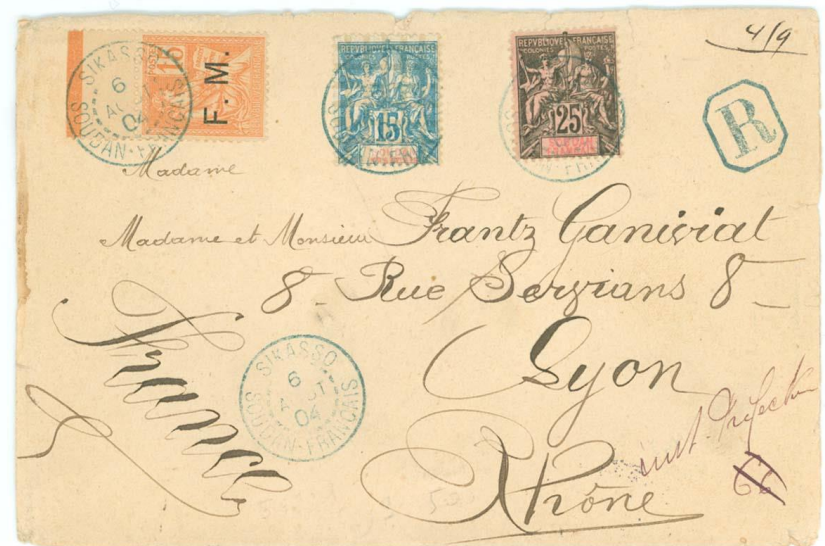 SIKASSO
6
AOUT
04
SOUDAN-FRANCAIS
15
F.M.
REPUBLIQUE FRANÇAISE
COLONIES POSTES
15
REPUBLIQUE FRANÇAISE
COLONIES POSTES
25
SOUDAN FRANÇAIS
4/9
R
Madame
Madame et Monsieur Frantz Ganiviat
8 - Rue Servians 8 -
Lyon
Rhône
France
SIKASSO
6
AOUT
04
SOUDAN-FRANCAIS